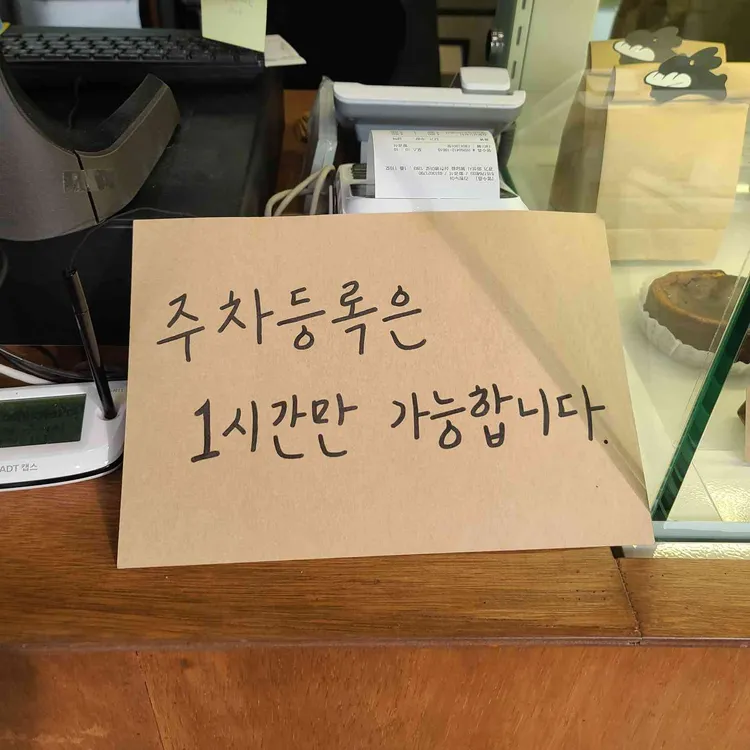 주차등록은
1시간만 가능합니다.
ADT 캡스